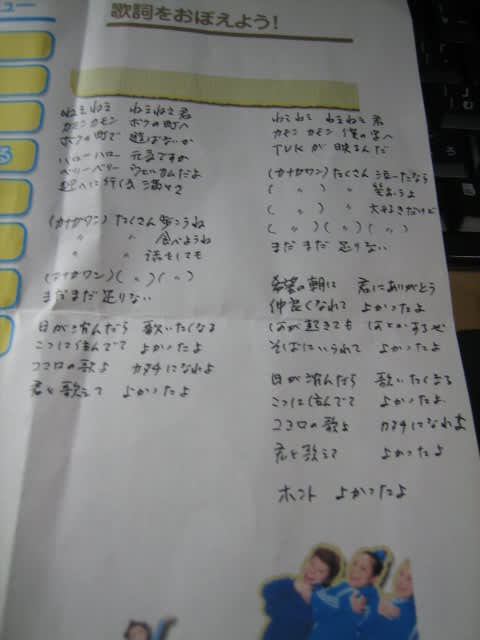 ュー
歌詞をおぼえよう!
ねえねえ ねえねえ君
カモンカモン ボクの町へ
ボクの町で 遊ばないか
ハローハロー 元気ですか
ベリーベリー
(カナガワン)たくさん 歩こうね
〃 〃 食べようね
〃 〃 話をしても
(カナガワン)(〃)(〃)
まだまだ足りない
日が沈んだら 歌いたくなる
ここに住んでて よかったよ
ココロの歌よ カタチになれよ
君と歌えて よかったよ
ねえねえ ねえねえ 君
カモン カモン 僕の家へ
TVKが 映るんだ
(カナガワン)たくさん 泣いたなら
(〃) 〃 笑おうよ
(〃) 〃 大好きだけど
(〃)(〃)(〃)
まだまだ 足りない
希望の朝に 君にありがとう
仲良くなれて よかったよ
そばにいられて よかったよ
日が沈んだら 歌いたくなる
ここに住んでて よかったよ
ココロの歌よ カタチになれよ
君と歌えて よかったよ
ホント よかったよ